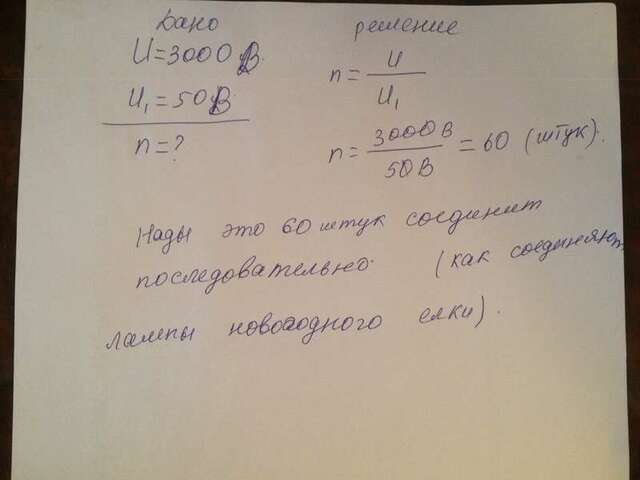 Дано
U=3000 В.
U₁=50В
n=?
решение
n = U / U₁
n = 3000 В / 50 В = 60 (штук).
Нады это 60 штук соединит
последовательно. (как соединяют
лампы новогодного елки).